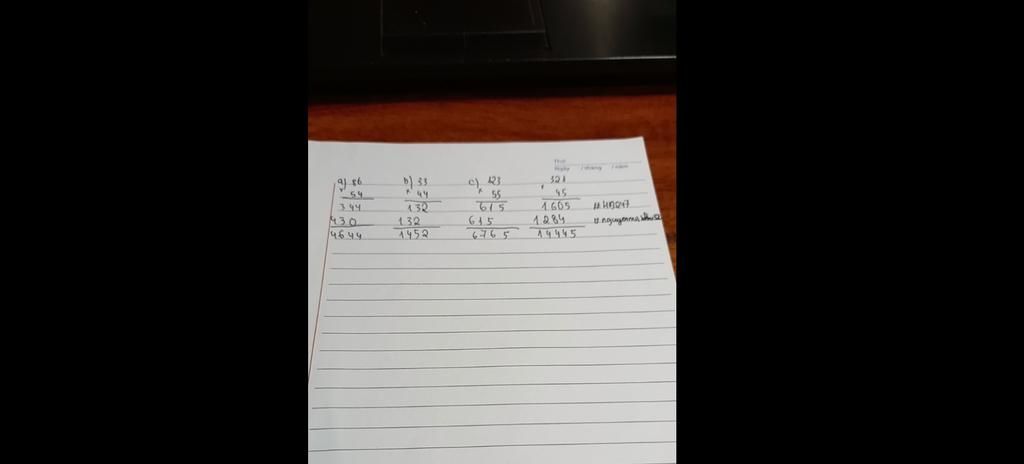 Thứ
Ngày / tháng / năm
a) 86 b) 33 c) 123 321
x 54 x 44 x 55 x 45
344 132 615 1605 # HD247
430 132 615 1284
4644 1452 6765 14445